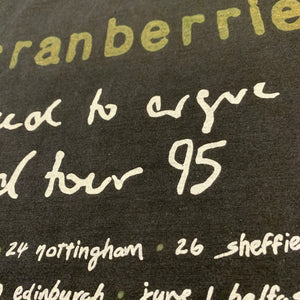 ranberrie
ed to argue
d tour 95
24 nottingham · 26 sheffie
edinburgh · june 1 belfa